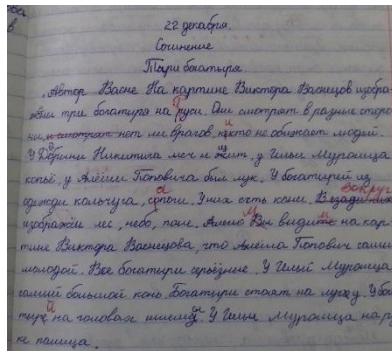 22 декабря.
Сочинение
Три богатыря.
Автор Васне На картине Виктора Васнецов изобра-
жены три богатыря на руси. Они смотрят в разные сторо-
ны и смотрят нет ли врагов, и кто не обижает людей.
У Добрыни Никитича меч и щит, у Ильи Муромца
копьё, у Алёши Поповича был лук. У богатырей из
одежды кальчуга, сапоги. У них есть кони. В
вокруг
изображён лес, небо, поле. Мы видим на кар-
тине Виктора Васнецова, что Алёша Попович самый
молодой. Все богатыри серьёзные. У Ильи Муромца
самый большой конь. Богатыри стоят на лугу. У бога
тырей на головах шлемы. У Ильи Муромца на ру
ке палица.